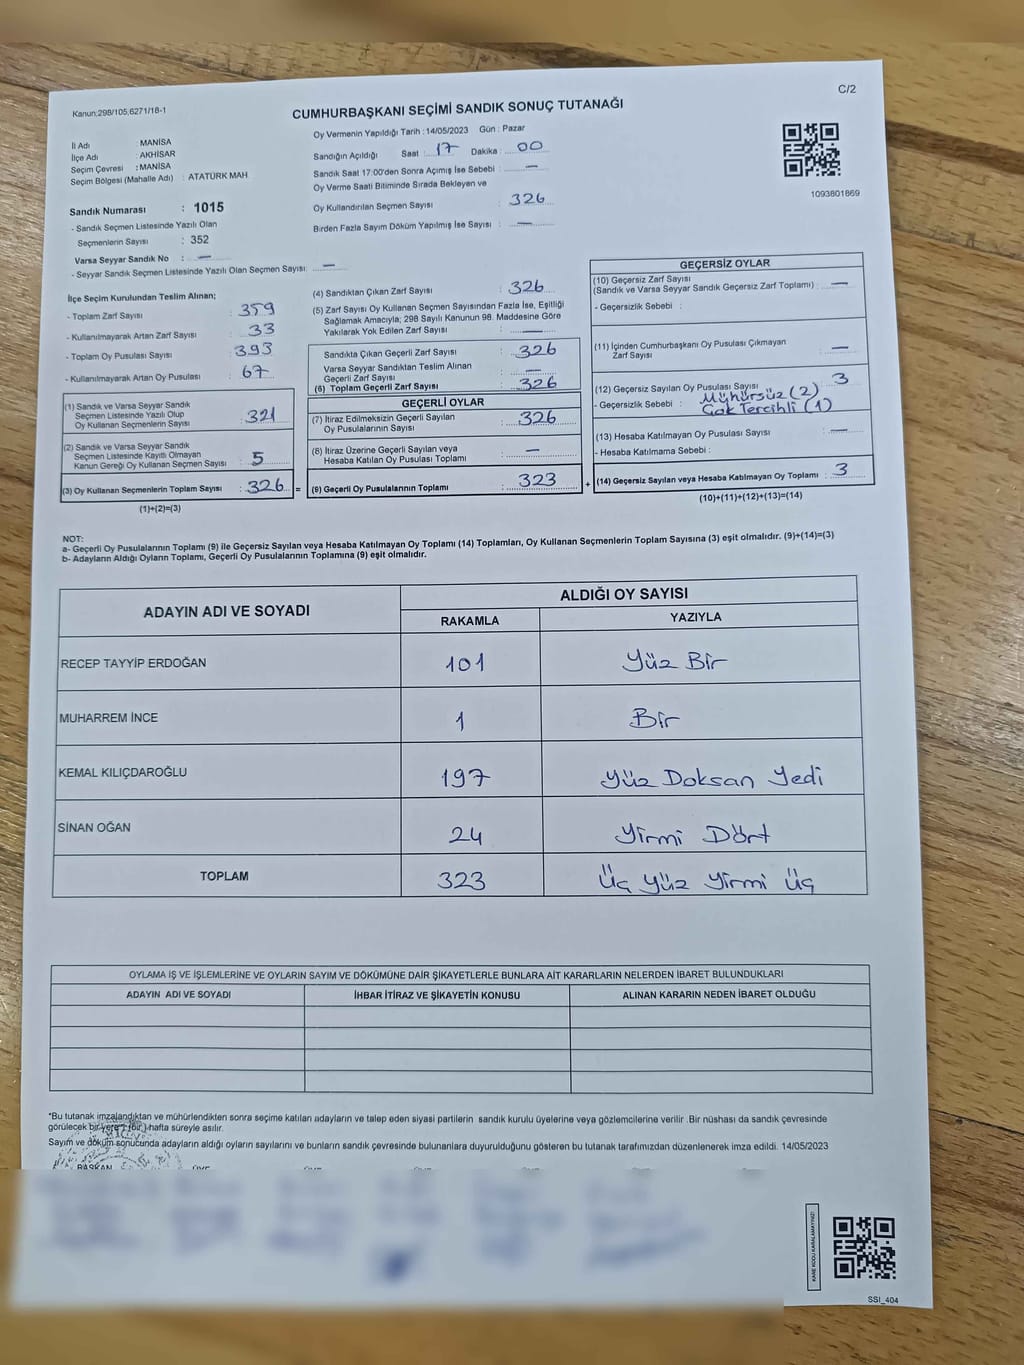 Kanun:298/105,6271/18-1
C/2
CUMHURBAŞKANI SEÇİMİ SANDIK SONUÇ TUTANAĞI
İl Adı : MANİSA
İlçe Adı : AKHİSAR
Seçim Çevresi : MANİSA
Seçim Bölgesi (Mahalle Adı) : ATATÜRK MAH
Sandık Numarası : 1015
- Sandık Seçmen Listesinde Yazılı Olan
Seçmenlerin Sayısı : 352
Varsa Seyyar Sandık No : —
- Seyyar Sandık Seçmen Listesinde Yazılı Olan Seçmen Sayısı: —
Oy Vermenin Yapıldığı Tarih : 14/05/2023 Gün : Pazar
Sandığın Açıldığı Saat : 17 Dakika : 00
Sandık Saat 17:00'den Sonra Açımış İse Sebebi : —
Oy Verme Saati Bitiminde Sırada Bekleyen ve
Oy Kullandırılan Seçmen Sayısı : 326
Birden Fazla Sayım Döküm Yapılmış İse Sayısı : —
1093801869
İlçe Seçim Kurulundan Teslim Alınan;
- Toplam Zarf Sayısı : 359
- Kullanılmayarak Artan Zarf Sayısı : 33
- Toplam Oy Pusulası Sayısı : 393
- Kullanılmayarak Artan Oy Pusulası : 67
(1) Sandık ve Varsa Seyyar Sandık
Seçmen Listesinde Yazılı Olup
Oy Kullanan Seçmenlerin Sayısı : 321
(2) Sandık ve Varsa Seyyar Sandık
Seçmen Listesinde Kayıtlı Olmayan
Kanun Gereği Oy Kullanan Seçmen Sayısı : 5
(3) Oy Kullanan Seçmenlerin Toplam Sayısı : 326 =
(1)+(2)=(3)
(4) Sandıktan Çıkan Zarf Sayısı : 326
(5) Zarf Sayısı Oy Kullanan Seçmen Sayısından Fazla İse, Eşitliği
Sağlamak Amacıyla; 298 Sayılı Kanunun 98. Maddesine Göre
Yakılarak Yok Edilen Zarf Sayısı : —
Sandıkta Çıkan Geçerli Zarf Sayısı : 326
Varsa Seyyar Sandıktan Teslim Alınan
Geçerli Zarf Sayısı : —
(6) Toplam Geçerli Zarf Sayısı : 326
GEÇERLİ OYLAR
(7) İtiraz Edilmeksizin Geçerli Sayılan
Oy Pusulalarının Sayısı : 326
(8) İtiraz Üzerine Geçerli Sayılan veya
Hesaba Katılan Oy Pusulası Toplamı : —
(9) Geçerli Oy Pusulalarının Toplamı : 323 +
GEÇERSİZ OYLAR
(10) Geçersiz Zarf Sayısı
(Sandık ve Varsa Seyyar Sandık Geçersiz Zarf Toplamı) : —
- Geçersizlik Sebebi :
(11) İçinden Cumhurbaşkanı Oy Pusulası Çıkmayan
Zarf Sayısı : —
(12) Geçersiz Sayılan Oy Pusulası Sayısı : 3
- Geçersizlik Sebebi : Mühürsüz (2)
Çok Tercihli (1)
(13) Hesaba Katılmayan Oy Pusulası Sayısı : —
- Hesaba Katılmama Sebebi :
(14) Geçersiz Sayılan veya Hesaba Katılmayan Oy Toplamı : 3
(10)+(11)+(12)+(13)=(14)
NOT:
a- Geçerli Oy Pusulalarının Toplamı (9) ile Geçersiz Sayılan veya Hesaba Katılmayan Oy Toplamı (14) Toplamları, Oy Kullanan Seçmenlerin Toplam Sayısına (3) eşit olmalıdır. (9)+(14)=(3)
b- Adayların Aldığı Oyların Toplamı, Geçerli Oy Pusulalarının Toplamına (9) eşit olmalıdır.
ADAYIN ADI VE SOYADI
ALDIĞI OY SAYISI
RAKAMLA YAZIYLA
RECEP TAYYİP ERDOĞAN 101 Yüz Bir
MUHARREM İNCE 1 Bir
KEMAL KILIÇDAROĞLU 197 Yüz Doksan Yedi
SİNAN OĞAN 24 Yirmi Dört
TOPLAM 323 Üç Yüz Yirmi Üç
OYLAMA İŞ VE İŞLEMLERİNE VE OYLARIN SAYIM VE DÖKÜMÜNE DAİR ŞİKAYETLERLE BUNLARA AİT KARARLARIN NELERDEN İBARET BULUNDUKLARI
ADAYIN ADI VE SOYADI İHBAR İTİRAZ VE ŞİKAYETİN KONUSU ALINAN KARARIN NEDEN İBARET OLDUĞU
*Bu tutanak imzalandıktan ve mühürlendikten sonra seçime katılan adayların ve talep eden siyasi partilerin sandık kurulu üyelerine veya gözlemcilerine verilir .Bir nüshası da sandık çevresinde
görülecek bir yere 1 (bir) hafta süreyle asılır.
Sayım ve döküm sonucunda adayların aldığı oyların sayılarını ve bunların sandık çevresinde bulunanlara duyurulduğunu gösteren bu tutanak tarafımızdan düzenlenerek imza edildi. 14/05/2023
BAŞKAN
KARE KODU KARALAMAYINIZ!
SSI_404